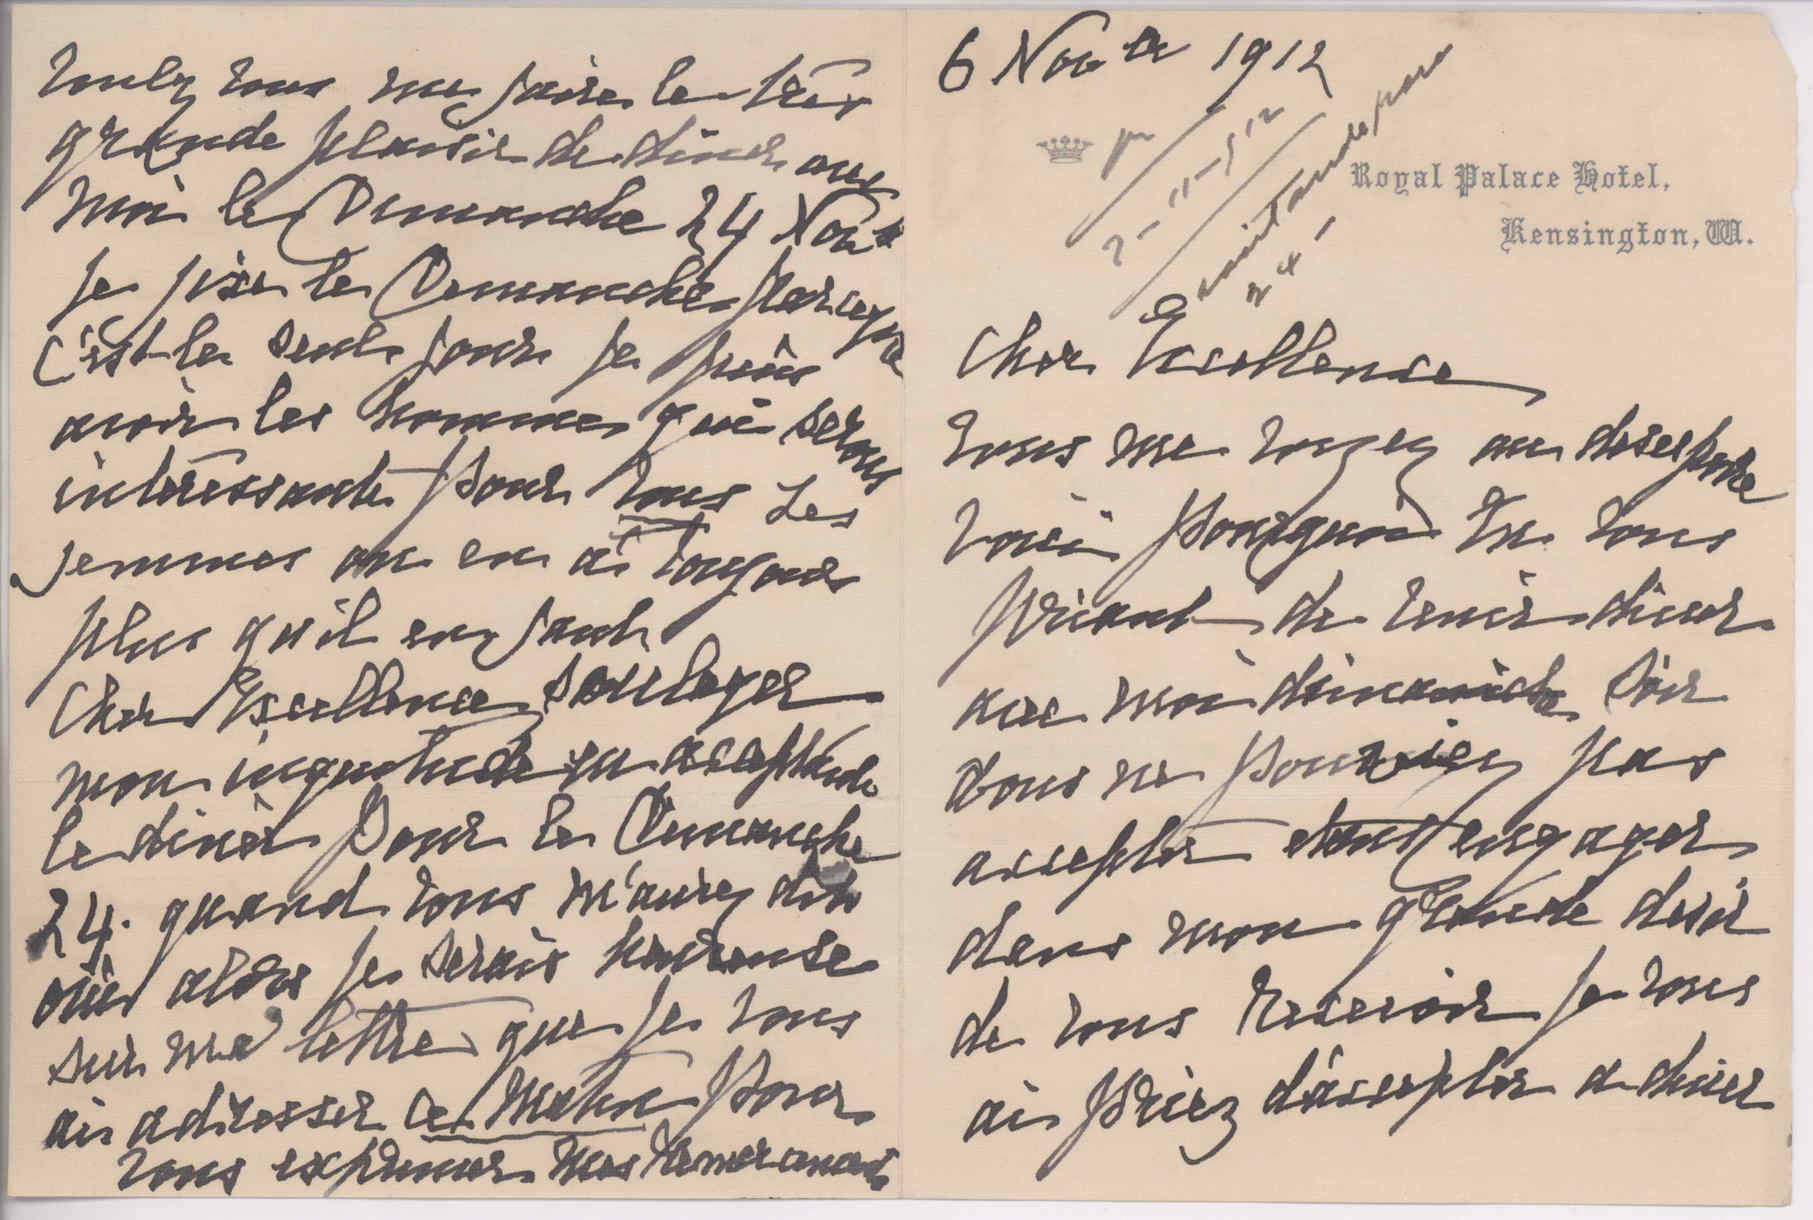 6 Novbre 1912
Royal Palace Hotel,
Kensington, W.
24 -
Cher Excellence
Vous me voyez au desespoire
voici pourquoi En vous
priant de venir diner
avec moi dimanche soir
vous ne pouviez pas
accepter etant engager
dans mon grande desir
de vous recevoir je vous
ai priez d'accepter a diner
voulez vous me faire le très
grande plaisir de diner avec
moi le Dimanche 24 Novbre
je fixe le Dimanche parceque
c'est le seul jour je puis
avoir les hommes qui serons
intéressante pour vous Les
femmes on en a toujours
plus qu'il en faut
Cher Excellence soulager
mon inquietude en acceptant
le diner Pour le Dimanche
24. quand vous m'aurez dit
oui alors je serais heureuse
sur ma lettre que je vous
ai adresser ce matin pour
vous exprimer mes